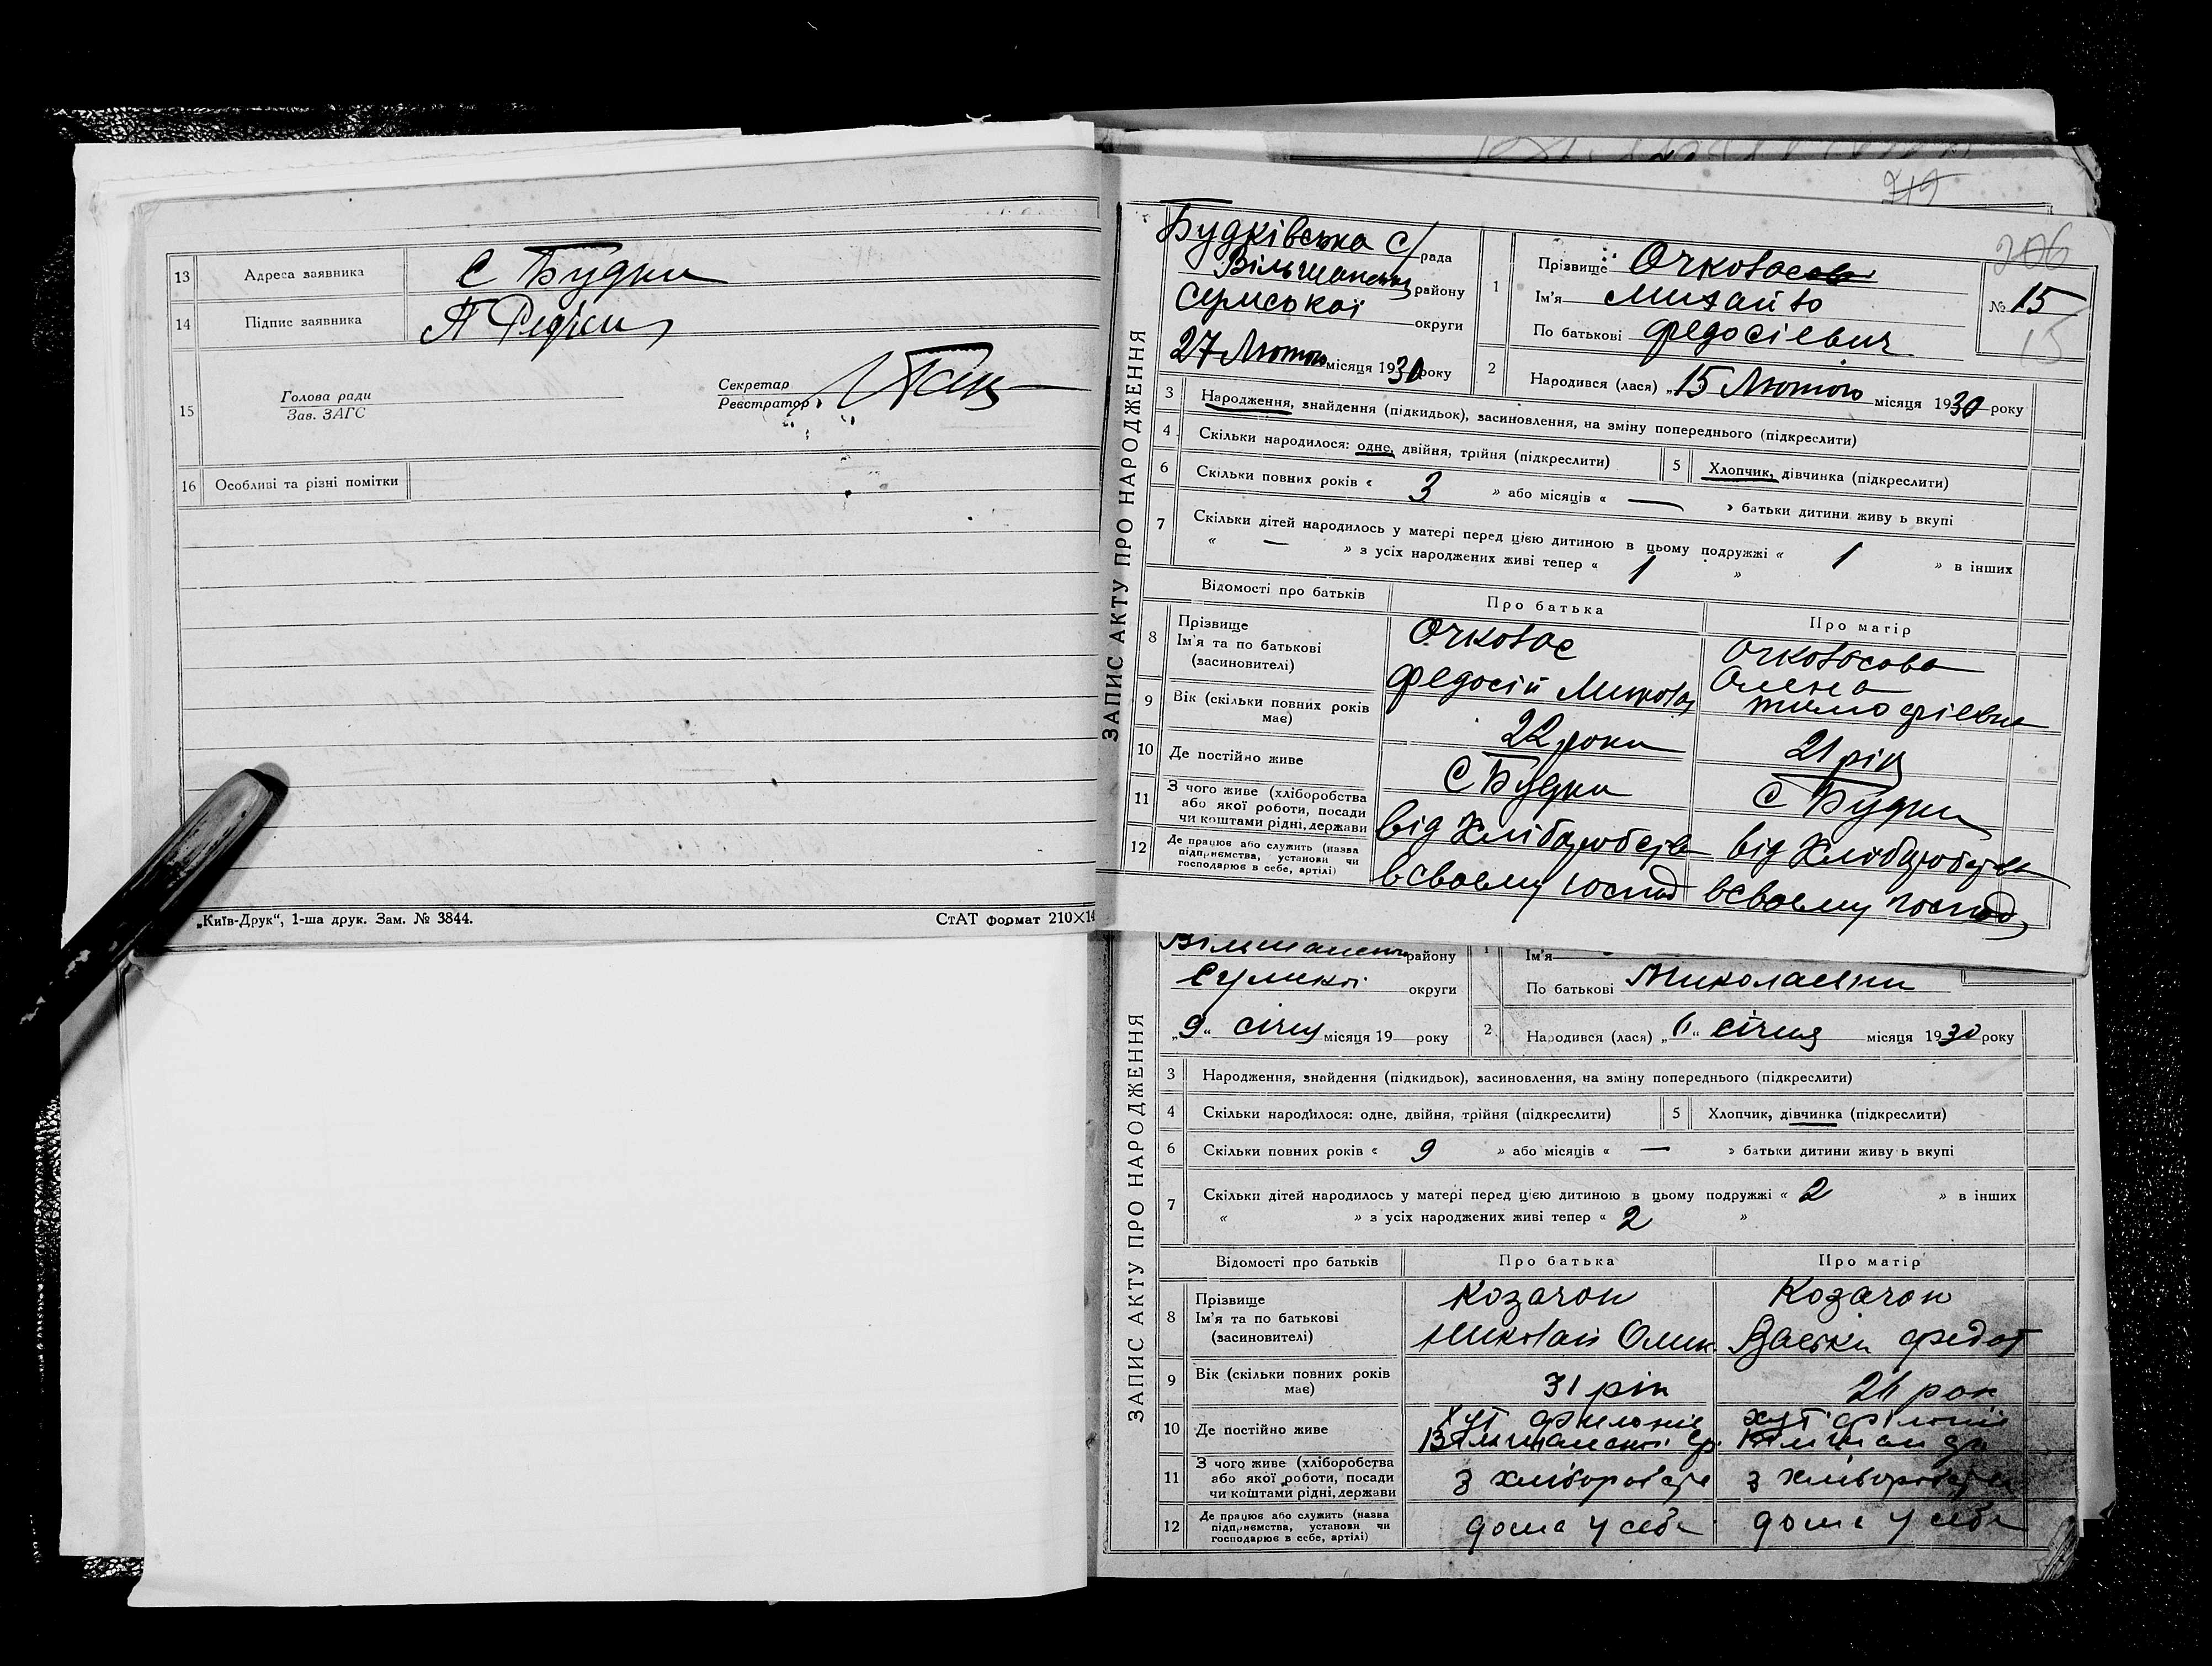 13 Адреса заявника С Будки
14 Підпис заявника
15 Голова ради
Зав. ЗАГС
Секретар
Реєстратор
16 Особливі та різні помітки
„Київ-Друк“, 1-ша друк. Зам. № 3844.
СтАТ формат 210×14
ЗАПИС АКТУ ПРО НАРОДЖЕННЯ
206
Будківська с/рада
Вільшанськ району
Сумської округи
27 Лютого місяця 1930 року
1 Прізвище Очколас
Ім'я Михайло
По батькові Федосіевич
№ 15
15
2 Народився (лася) „15 Лютого місяця 1930 року
3 Народження, знайдення (підкидьок), засиновлення, на зміну попереднього (підкреслити)
4 Скільки народилося: одне, двійня, трійня (підкреслити)
5 Хлопчик, дівчинка (підкреслити)
6 Скільки повних років « 3 » або місяців « — » батьки дитини живу ь вкупі
7 Скільки дітей народилось у матері перед цією дитиною в цьому подружжі « 1 » в інших
« — » з усіх народжених живі тепер « 1 »
Відомості про батьків Про батька Про матір
8 Прізвище
Ім'я та по батькові
(засиновителі)
Очколас
Федосій Микол
Очколасова
Олена
тимофіевна
9 Вік (скільки повних років має) 22 роки 21 рік
10 Де постійно живе С Будки С Будки
11 З чого живе (хліборобства
або якої роботи, посади
чи коштами рідні, держави
від Хліборобств від Хліборобства
12 Де працює або служить (назва
підприємства, установи чи
господарює в себе, артілі)
всвоему господ всвоему господ
ЗАПИС АКТУ ПРО НАРОДЖЕННЯ
Вільшанськ району
Сумскої округи
„9“ січня місяця 19 року
1 Ім'я
По батькові Миколаевни
2 Народився (лася) „6“ січня місяця 1930 року
3 Народження, знайдення (підкидьок), засиновлення, на зміну попереднього (підкреслити)
4 Скільки народилося: одне, двійня, трійня (підкреслити)
5 Хлопчик, дівчинка (підкреслити)
6 Скільки повних років « 9 » або місяців « — » батьки дитини живу ь вкупі
7 Скільки дітей народилось у матері перед цією дитиною в цьому подружжі « 2 » в інших
« » з усіх народжених живі тепер « 2 »
Відомості про батьків Про батька Про матір
8 Прізвище
Ім'я та по батькові
(засиновителі)
Козачок Козачок
Николай федот
9 Вік (скільки повних років має) 31 рік 26 рок
10 Де постійно живе хут хут
11 З чого живе (хліборобства
або якої роботи, посади
чи коштами рідні, держави
з хліборобств з хліборобств
12 Де працює або служить (назва
підприємства, установи чи
господарює в себе, артілі)
дома у себе дома у себе